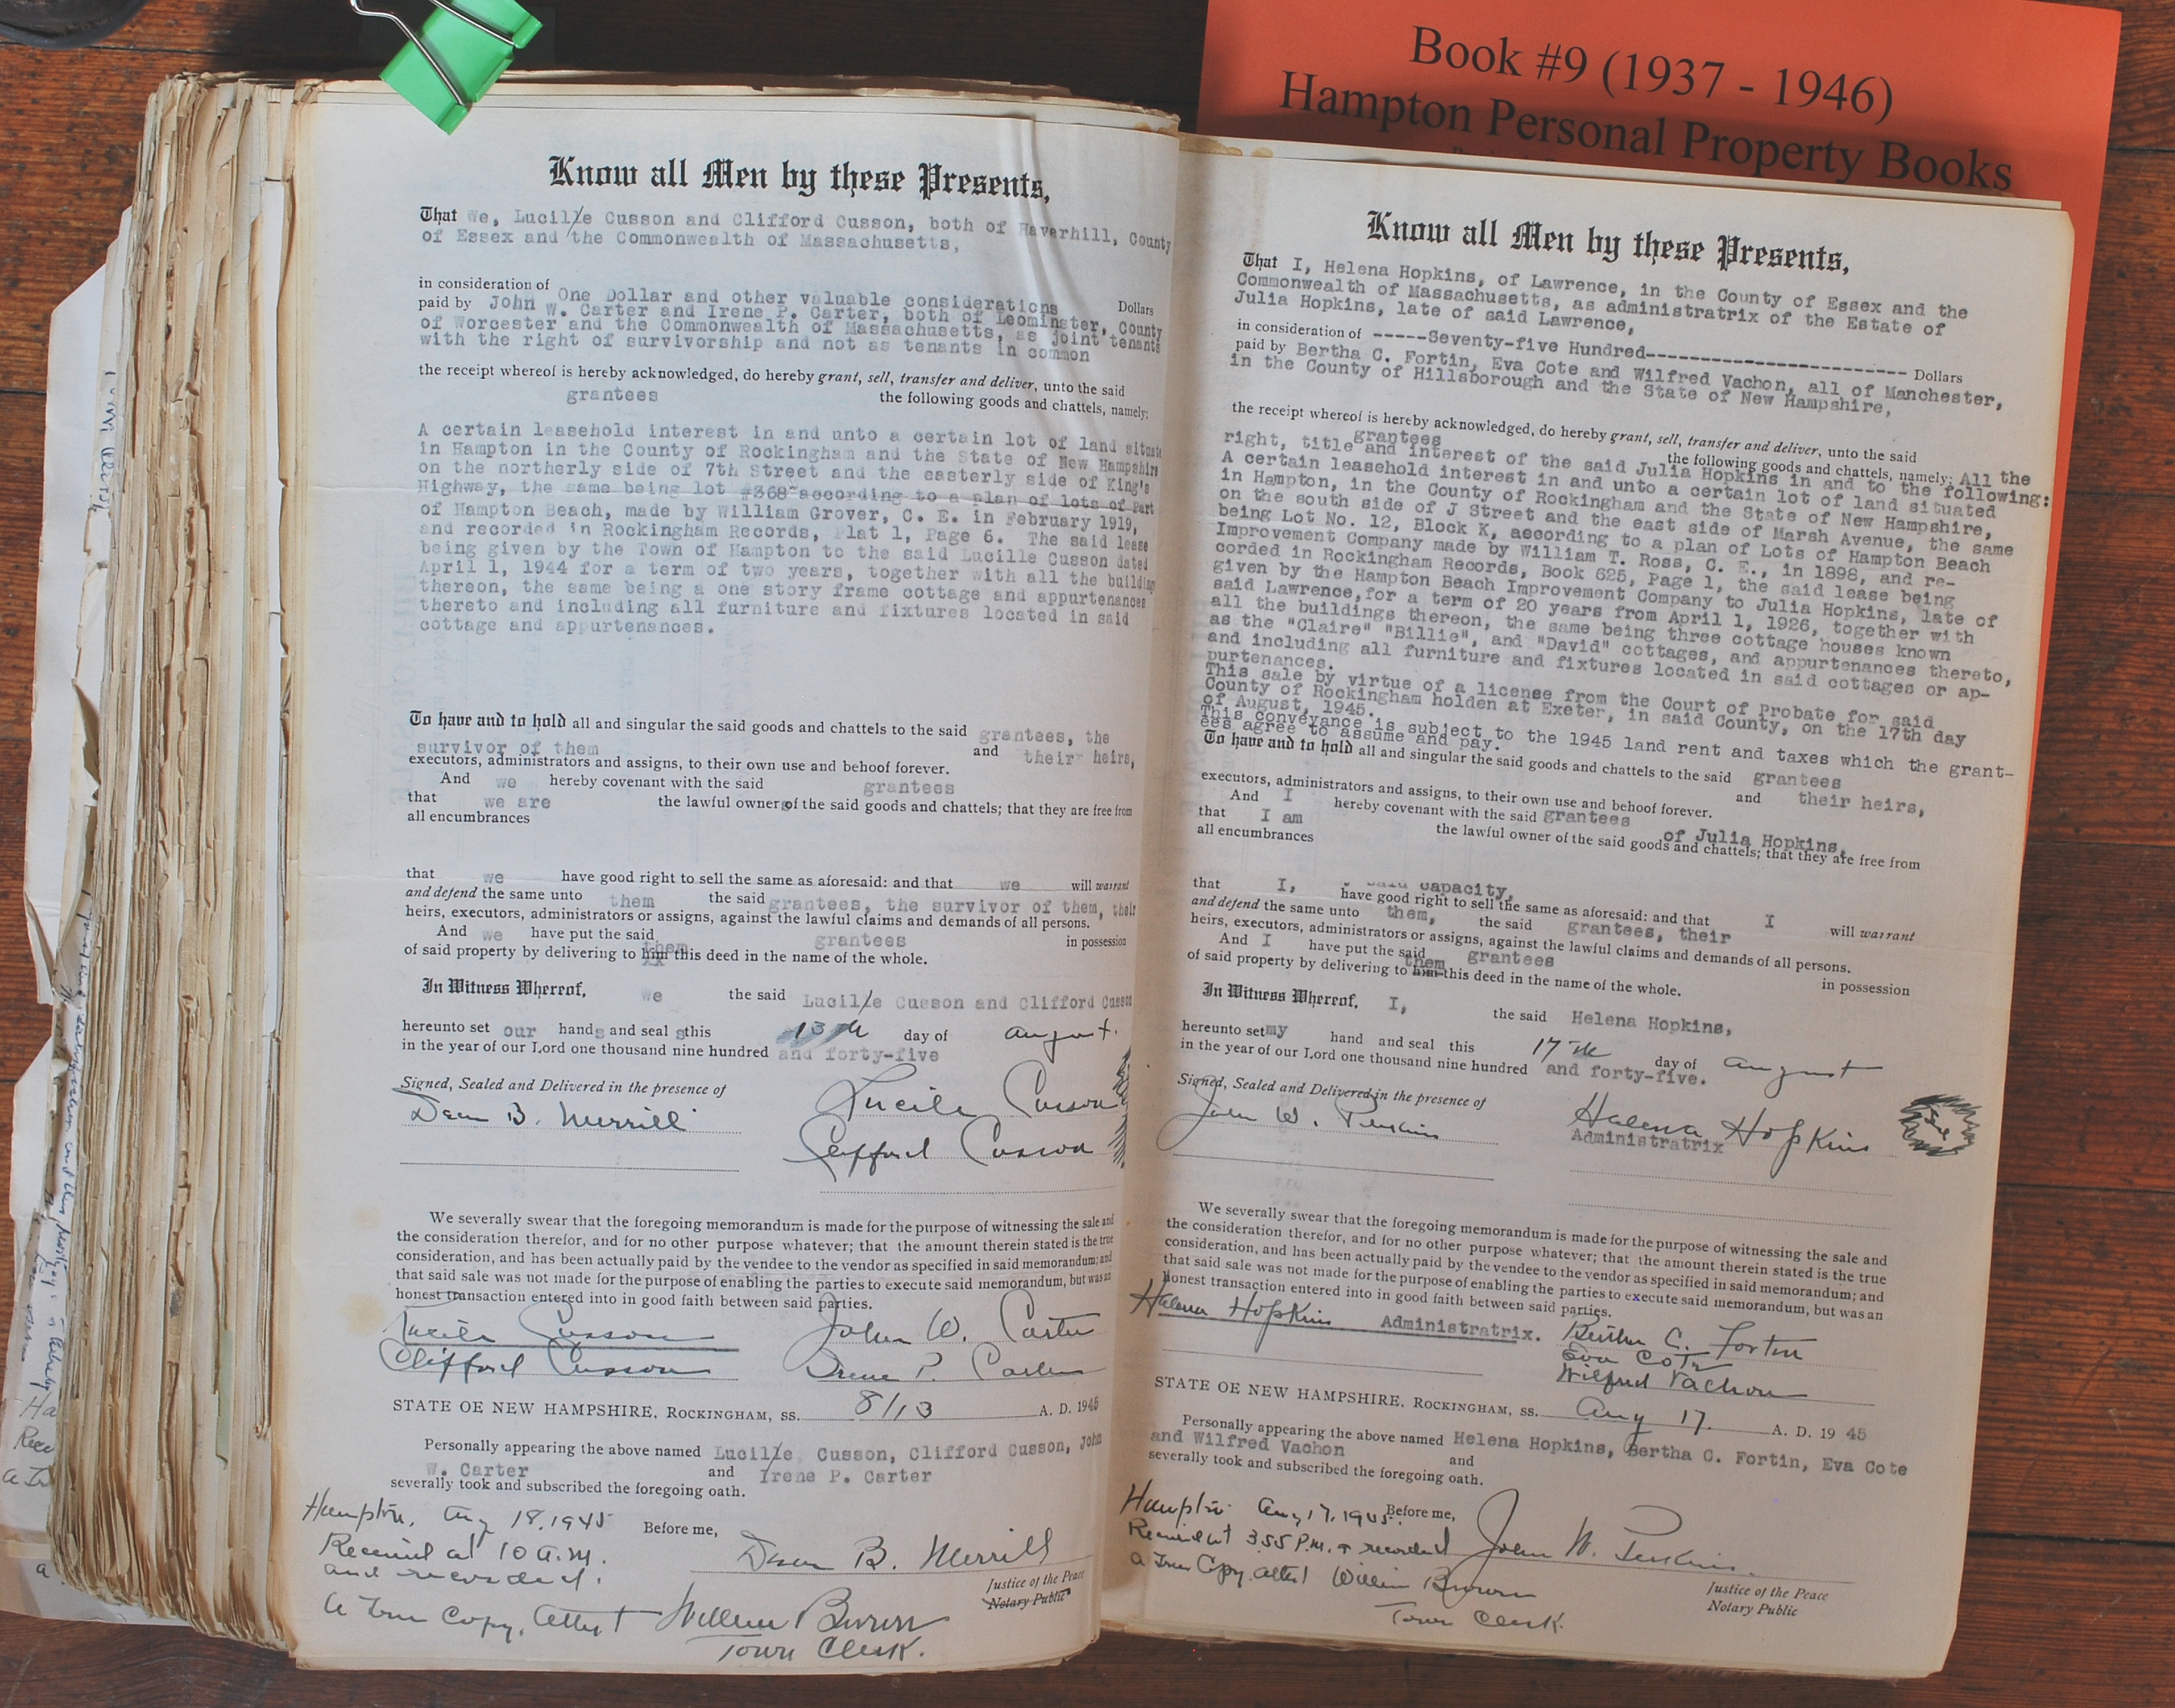 Book #9 (1937 - 1946)
Hampton Personal Property Books
Know all Men by these Presents,
That We, Lucille Cusson and Clifford Cusson, both of Haverhill, County
of Essex and the Commonwealth of Massachusetts,
in consideration of One Dollar and other valuable considerations Dollars
paid by John W. Carter and Irene P. Carter, both of Leominster, County
of Worcester and the Commonwealth of Massachusetts, as joint tenants
with the right of survivorship and not as tenants in common
the receipt whereof is hereby acknowledged, do hereby grant, sell, transfer and deliver, unto the said
grantees the following goods and chattels, namely:
A certain leasehold interest in and unto a certain lot of land situate
in Hampton in the County of Rockingham and the State of New Hampshire
on the northerly side of 7th Street and the easterly side of King's
Highway, the same being lot #368 according to a plan of lots of Part
of Hampton Beach, made by William Grover, C. E. in February 1919,
and recorded in Rockingham Records, Plat 1, Page 6. The said lease
being given by the Town of Hampton to the said Lucille Cusson dated
April 1, 1944 for a term of two years, together with all the buildings
thereon, the same being a one story frame cottage and appurtenances
thereto and including all furniture and fixtures located in said
cottage and appurtenances.
To have and to hold all and singular the said goods and chattels to the said grantees, the
survivor of them and their heirs,
executors, administrators and assigns, to their own use and behoof forever.
And we hereby covenant with the said grantees
that we are the lawful owners of the said goods and chattels; that they are free from
all encumbrances
that we have good right to sell the same as aforesaid: and that we will warrant
and defend the same unto them the said grantees, the survivor of them, their
heirs, executors, administrators or assigns, against the lawful claims and demands of all persons.
And we have put the said grantees in possession
of said property by delivering to him them this deed in the name of the whole.
In Witness Whereof, we the said Lucille Cusson and Clifford Cusson
hereunto set our hands and seal s this 13th day of August.
in the year of our Lord one thousand nine hundred and forty-five
Signed, Sealed and Delivered in the presence of
Dean B. Merrill Lucile Cusson
Clifford Cusson
We severally swear that the foregoing memorandum is made for the purpose of witnessing the sale and
the consideration therefor, and for no other purpose whatever; that the amount therein stated is the true
consideration, and has been actually paid by the vendee to the vendor as specified in said memorandum; and
that said sale was not made for the purpose of enabling the parties to execute said memorandum, but was an
honest transaction entered into in good faith between said parties.
Lucile Cusson John W. Carter
Clifford Cusson Irene P. Carter
STATE OE NEW HAMPSHIRE, ROCKINGHAM, SS. 8/13 A. D. 1945
Personally appearing the above named Lucille Cusson, Clifford Cusson, John
W. Carter and Irene P. Carter
severally took and subscribed the foregoing oath.
Hampton, Aug 18, 1945 Before me,
Received at 10 A.M. Dean B. Merrill
and recorded. Justice of the Peace
Notary Public
A True Copy, Attest William Brown
Town Clerk.
Know all Men by these Presents,
That I, Helena Hopkins, of Lawrence, in the County of Essex and the
Commonwealth of Massachusetts, as administratrix of the Estate of
Julia Hopkins, late of said Lawrence,
in consideration of -----Seventy-five Hundred------------------------------ Dollars
paid by Bertha C. Fortin, Eva Cote and Wilfred Vachon, all of Manchester,
in the County of Hillsborough and the State of New Hampshire,
the receipt whereof is hereby acknowledged, do hereby grant, sell, transfer and deliver, unto the said
grantees the following goods and chattels, namely: All the
right, title and interest of the said Julia Hopkins in and to the following:
A certain leasehold interest in and unto a certain lot of land situated
in Hampton, in the County of Rockingham and the State of New Hampshire,
on the south side of J Street and the east side of Marsh Avenue, the same
being Lot No. 12, Block K, according to a plan of Lots of Hampton Beach
Improvement Company made by William T. Ross, C. E., in 1898, and re-
corded in Rockingham Records, Book 625, Page 1, the said lease being
given by the Hampton Beach Improvement Company to Julia Hopkins, late of
said Lawrence, for a term of 20 years from April 1, 1926, together with
all the buildings thereon, the same being three cottage houses known
as the "Claire" "Billie", and "David" cottages, and appurtenances thereto,
and including all furniture and fixtures located in said cottages or ap-
purtenances.
This sale by virtue of a license from the Court of Probate for said
County of Rockingham holden at Exeter, in said County, on the 17th day
of August, 1945.
This conveyance is subject to the 1945 land rent and taxes which the grant-
ees agree to assume and pay.
To have and to hold all and singular the said goods and chattels to the said grantees
and their heirs,
executors, administrators and assigns, to their own use and behoof forever.
And I hereby covenant with the said grantees
that I am the lawful owner of the said goods and chattels; that they are free from
of Julia Hopkins,
all encumbrances
said capacity,
that I, have good right to sell the same as aforesaid: and that I will warrant
and defend the same unto them, the said grantees, their
heirs, executors, administrators or assigns, against the lawful claims and demands of all persons.
And I have put the said grantees in possession
of said property by delivering to him them this deed in the name of the whole.
In Witness Whereof, I, the said Helena Hopkins,
hereunto set my hand and seal this 17th day of August
in the year of our Lord one thousand nine hundred and forty-five.
Signed, Sealed and Delivered in the presence of
John W. Perkins Helena Hopkins
Administratrix
We severally swear that the foregoing memorandum is made for the purpose of witnessing the sale and
the consideration therefor, and for no other purpose whatever; that the amount therein stated is the true
consideration, and has been actually paid by the vendee to the vendor as specified in said memorandum; and
that said sale was not made for the purpose of enabling the parties to execute said memorandum, but was an
honest transaction entered into in good faith between said parties.
Helena Hopkins Administratrix. Bertha C. Fortin
Eva Cote
Wilfred Vachon
STATE OE NEW HAMPSHIRE, ROCKINGHAM, SS. Aug 17. A. D. 19 45
Personally appearing the above named Helena Hopkins, Bertha C. Fortin, Eva Cote
and Wilfred Vachon and
severally took and subscribed the foregoing oath.
Hampton Aug 17, 1945. Before me,
Received at 3.55 P.M. & recorded John W. Perkins.
A True Copy. Attest William Brown Justice of the Peace
Town Clerk. Notary Public